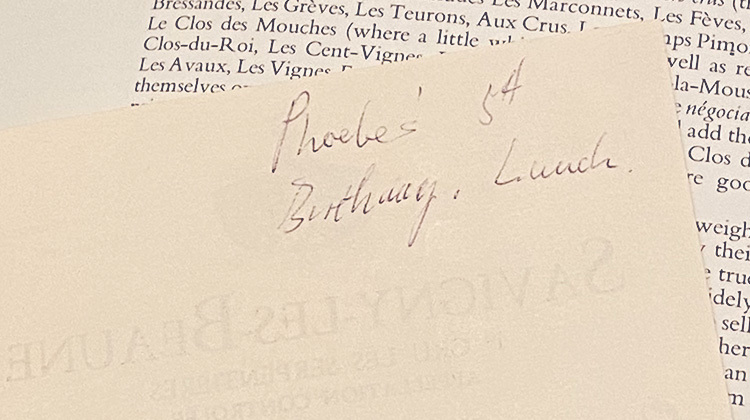 Bressandes, Les Grèves, Les Teurons, Aux Crus, Les Marconnets, Les Fèves,
Le Clos des Mouches (where a little Pimo
Clos-du-Roi, Les Cent-Vignes well as re
Les Avaux, Les Vignes la-Mous
themselves négocia
add the
Clos d
re goo
Phoebe's 5th
Birthday. Lunch.
weigh
thei
true
idely
sell
her
an
m
SAVIGNY-LES-BEAUNE
1er CRU LES SERPENTIÈRES
APPELLATION CONTROLÉE